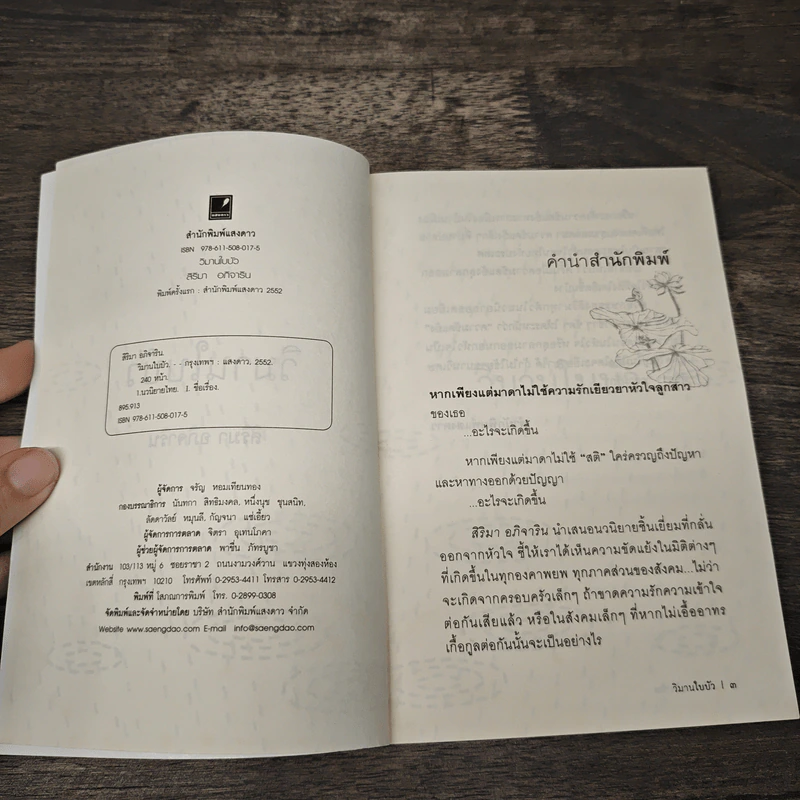 สำนักพิมพ์แสงดาว
ISBN 978-611-508-017-5
วิมานใบบัว
สิริมา อภิจาริน
พิมพ์ครั้งแรก : สำนักพิมพ์แสงดาว 2552
สิริมา อภิจาริน.
วิมานใบบัว. - - กรุงเทพฯ : แสงดาว, 2552.
240 หน้า.
1.นวนิยายไทย. I. ชื่อเรื่อง.
895.913
ISBN 978-611-508-017-5
ผู้จัดการ จรัญ หอมเทียนทอง
กองบรรณาธิการ นันทกา สิทธิมงคล, หนึ่งนุช ชุนสนิท,
ลัดดาวัลย์ หมุนลี, กัญจนา แซ่เอี้ยว
ผู้จัดการการตลาด จิตรา อุเทนโภคา
ผู้ช่วยผู้จัดการการตลาด พาขึ้น ภัทรบูชา
สำนักงาน 103/113 หมู่ 6 ซอยราชา 2 ถนนงามวงศ์วาน แขวงทุ่งสองห้อง
เขตหลักสี่ กรุงเทพฯ 10210 โทรศัพท์ 0-2953-4411 โทรสาร 0-2953-4412
พิมพ์ที่ โสภณการพิมพ์ โทร. 0-2899-0308
จัดพิมพ์และจัดจำหน่ายโดย บริษัท สำนักพิมพ์แสงดาว จำกัด
Website www.saengdao.com E-mail info@saengdao.com
คำนำสำนักพิมพ์
หากเพียงแต่มาดาไม่ใช้ความรักเยียวยาหัวใจลูกสาว
ของเธอ
...อะไรจะเกิดขึ้น
หากเพียงแต่มาดาไม่ใช้ “สติ” ใคร่ครวญถึงปัญหา
และหาทางออกด้วยปัญญา
...อะไรจะเกิดขึ้น
สิริมา อภิจาริน นำเสนอนวนิยายชิ้นเยี่ยมที่กลั่น
ออกจากหัวใจ ชี้ให้เราได้เห็นความขัดแย้งในมิติต่างๆ
ที่เกิดขึ้นในทุกองคาพยพ ทุกภาคส่วนของสังคม...ไม่ว่า
จะเกิดจากครอบครัวเล็กๆ ถ้าขาดความรักความเข้าใจ
ต่อกันเสียแล้ว หรือในสังคมเล็กๆ ที่หากไม่เอื้ออาทร
เกื้อกูลต่อกันนั้นจะเป็นอย่างไร
วิมานใบบัว | ๓